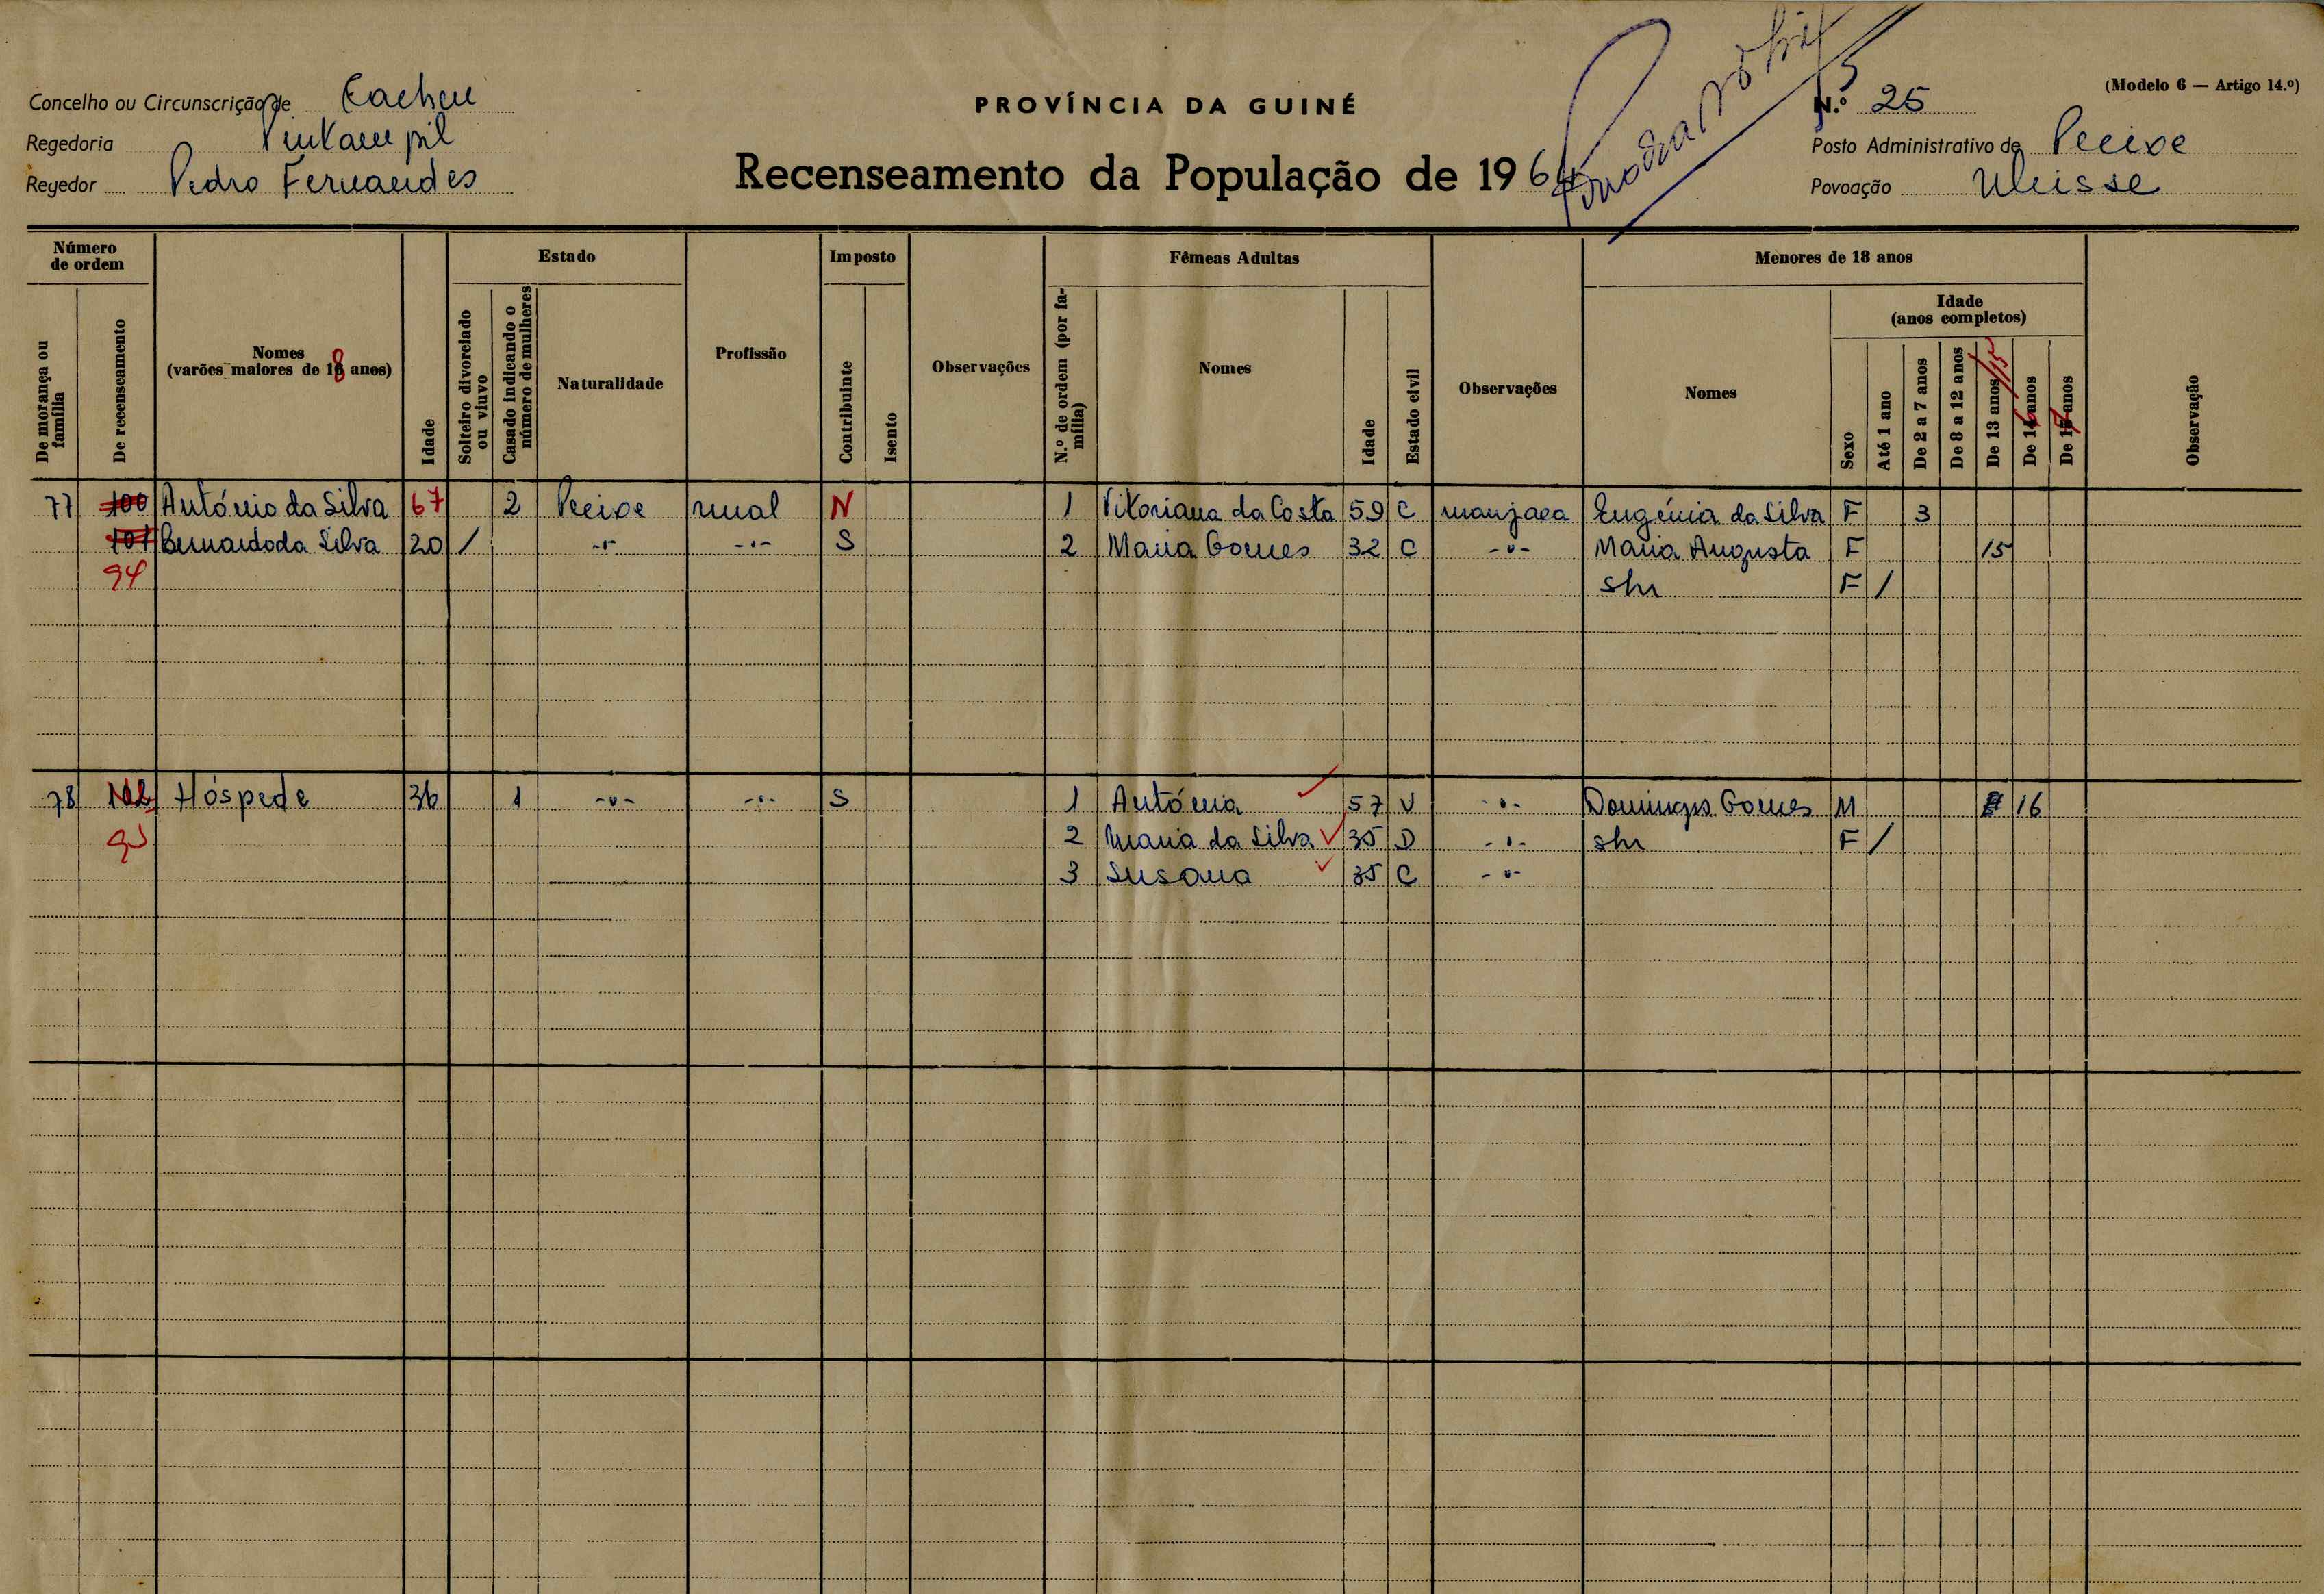 PROVÍNCIA DA GUINÉ
(Modelo 6 — Artigo 14.º)
Concelho ou Circunscrição de Cacheu
N.º 25
Regedoria
Posto Administrativo de Pecixe
Regedor Pedro Fernandes
Recenseamento da População de 196
Povoação
Número de ordem
Estado
Imposto
Fêmeas Adultas
Menores de 18 anos
Idade (anos completos)
De morança ou família
De recenseamento
Nomes (varões maiores de 18 anos)
Idade
Solteiro divorciado ou viuvo
Casado indicando o número de mulheres
Naturalidade
Profissão
Contribuinte
Isento
Observações
N.º de ordem (por família)
Nomes
Idade
Estado civil
Observações
Nomes
Sexo
Até 1 ano
De 2 a 7 anos
De 8 a 12 anos
De 13 anos 15
De 16 anos
De 17 anos
Observação
77 100 António da Silva 67 2 Pecixe rural N 1 Vitoriana da Costa 59 C manjaca Eugénia da Silva F 3
101 Bernardo da Silva 20 / -"- -"- S 2 Maria Gomes 32 C -"- Maria Augusta F 15
94 shr F /
78 102 Hóspede 36 1 -"- -"- S 1 Antónia 57 V -"- Domingos Gomes M 16
95 2 Maria da Silva 35 D -"- shr F /
3 Susana 35 C -"-